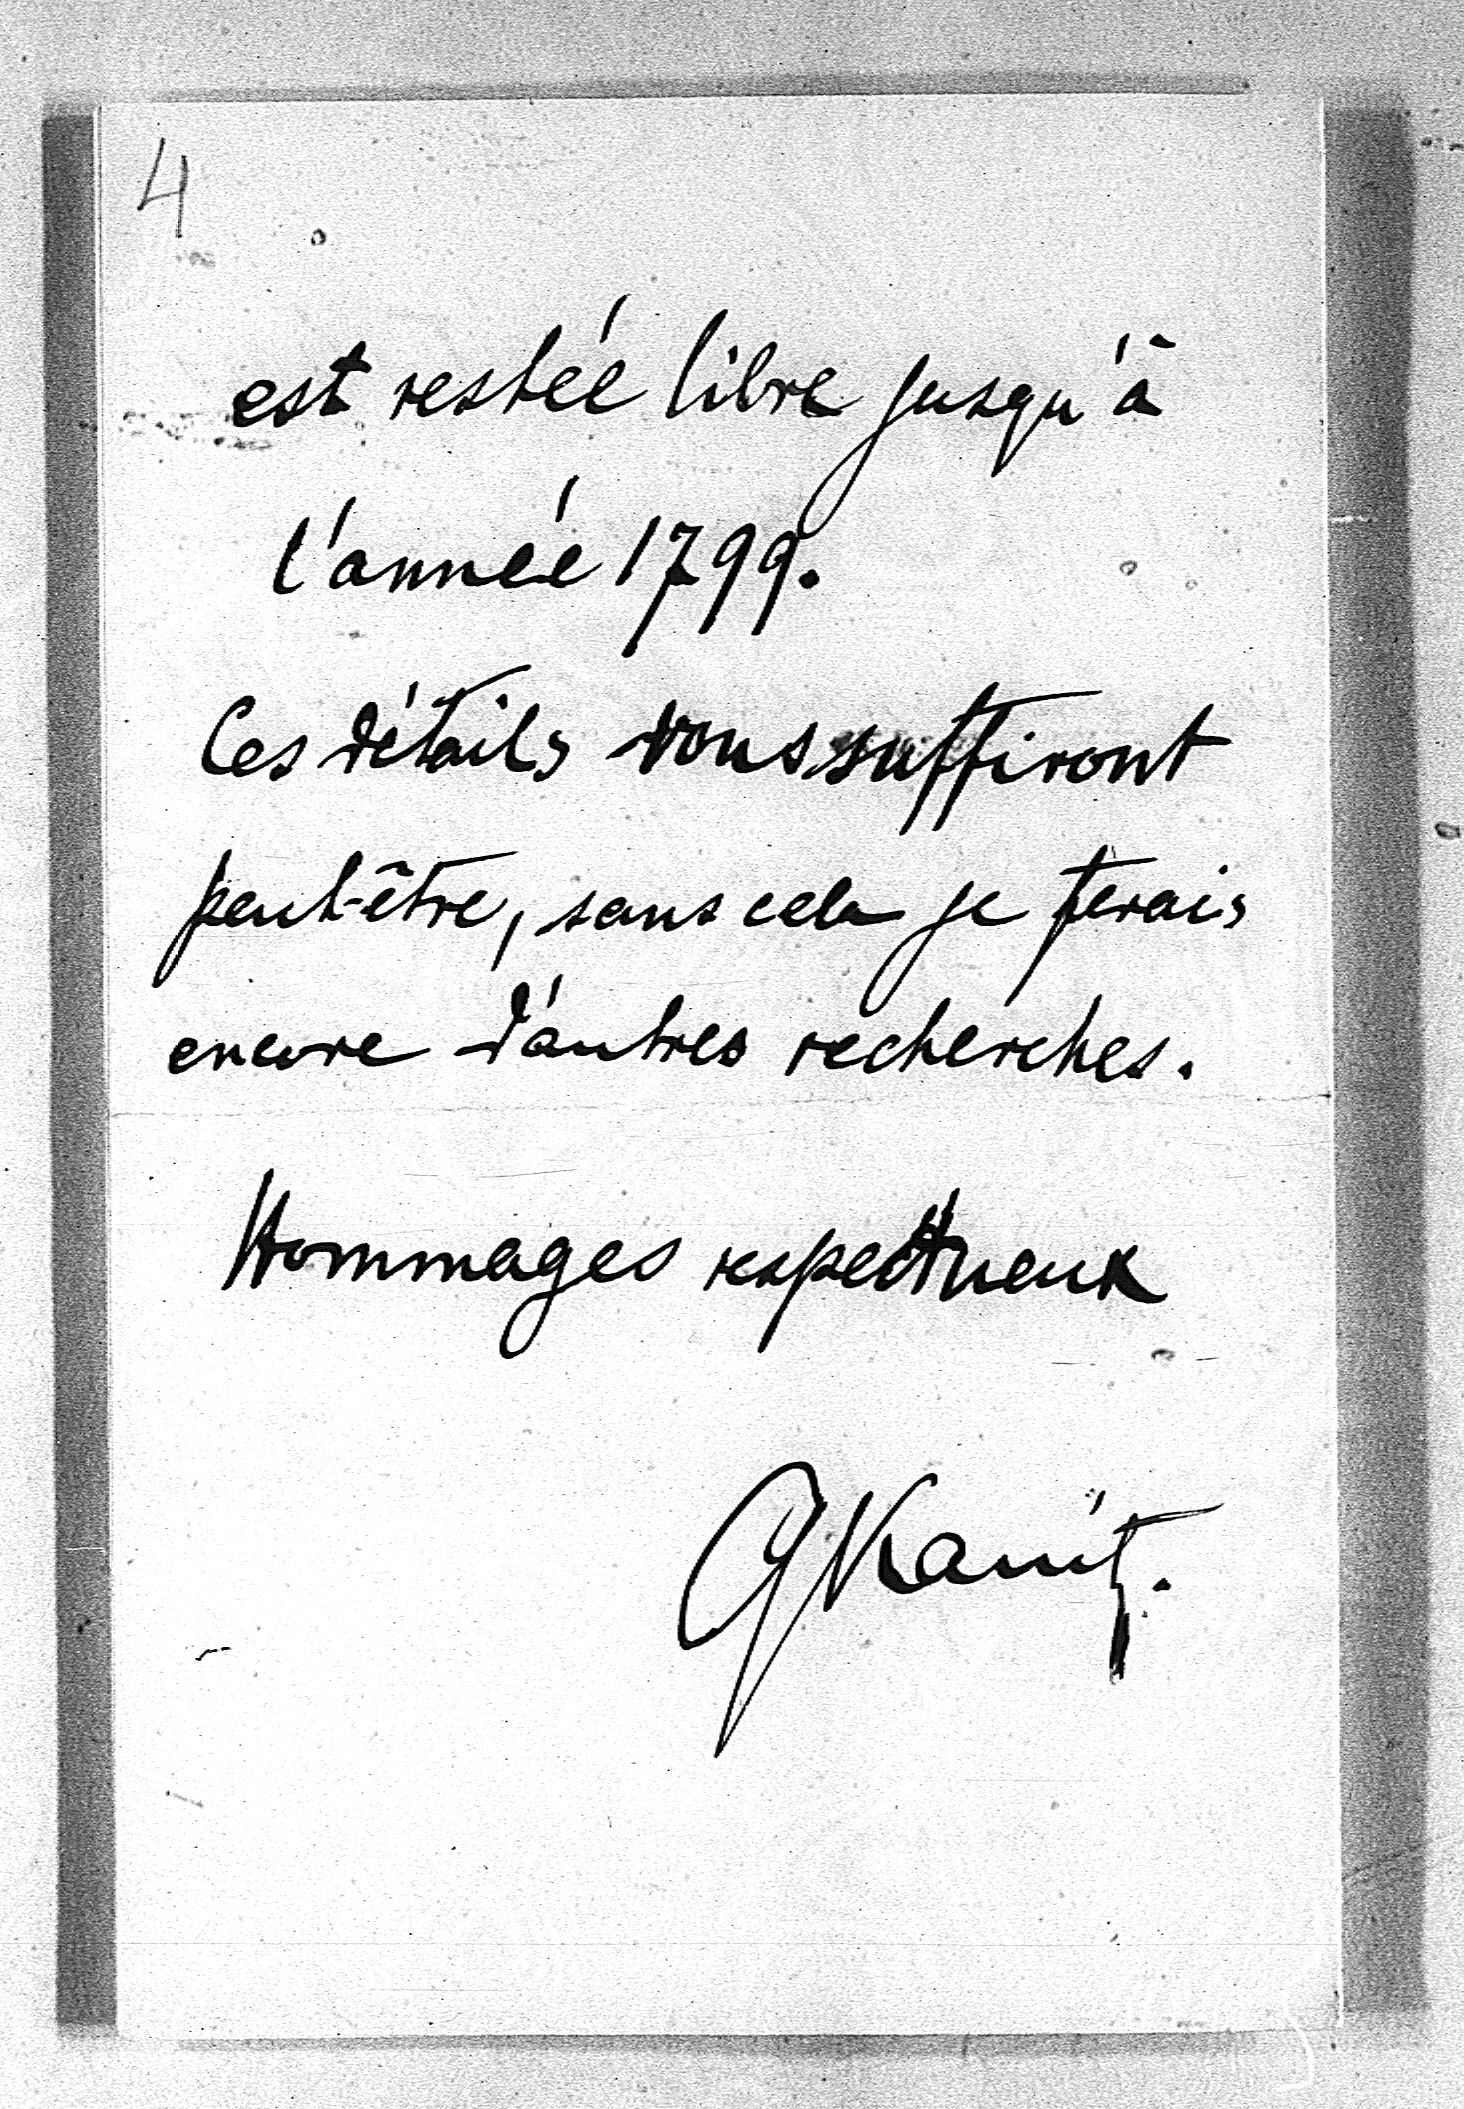 4
est restée libre jusqu'à
l'année 1799.
Ces détails vous suffiront
peut-être, sans cela je ferais
encore d'autres recherches.
Hommages respectueux
G Kanitz.